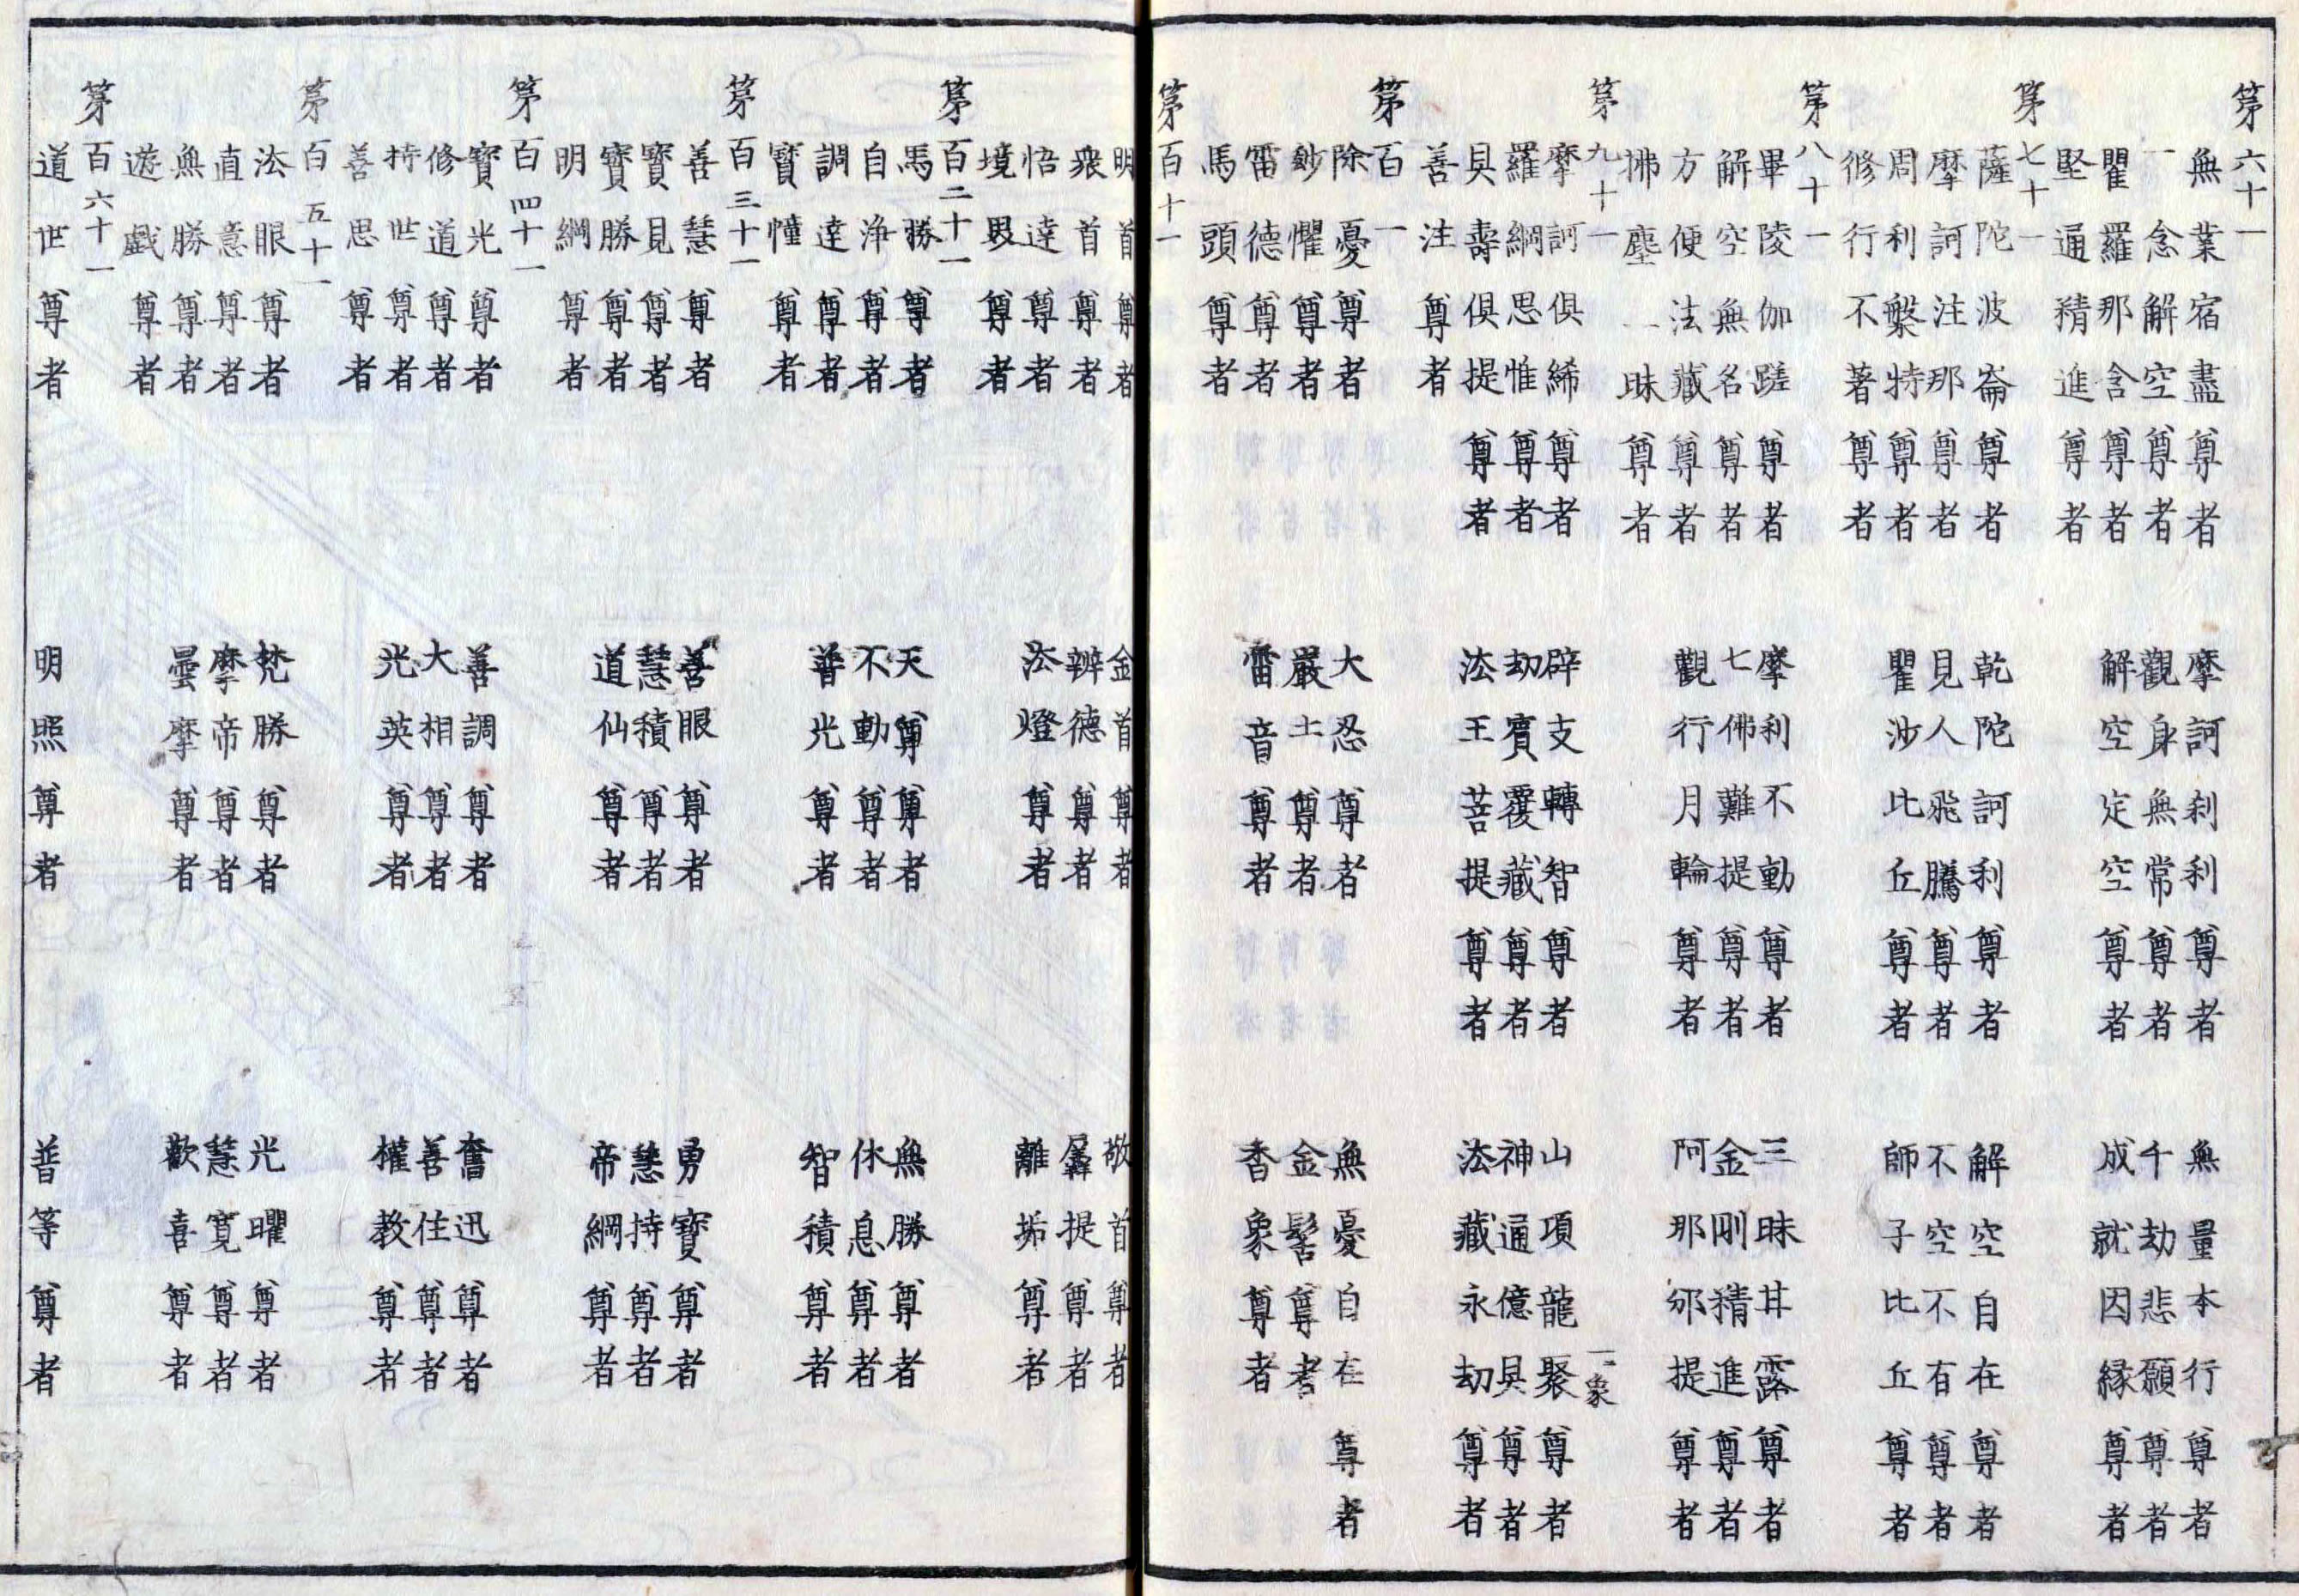 第六十一
無業宿盡尊者　摩訶刹利尊者　無量本行尊者
一念解空尊者　觀身無常尊者　千劫悲願尊者
瞿羅那含尊者　解空定空尊者　成就因縁尊者
堅通精進尊者
第七十一
薩陀波崙尊者　乾陀訶利尊者　解空自在尊者
摩訶注那尊者　見人飛騰尊者　不空不有尊者
周利槃特尊者　瞿沙比丘尊者　師子比丘尊者
修行不著尊者
第八十一
畢陵伽蹉尊者　摩利不動尊者　三昧甘露尊者
解空無名尊者　七佛難提尊者　金剛精進尊者
方便法藏尊者　觀行月輪尊者　阿那邠提尊者
拂塵一昧尊者
第九十一　一象
摩訶俱絺尊者　辟支轉智尊者　山項龍聚尊者
羅網思惟尊者　劫賓覆藏尊者　神通億具尊者
具壽俱提尊者　法王菩提尊者　法藏永劫尊者
善注尊者
第百一
除憂尊者　大忍尊者　無憂自在尊者
鈔懼尊者　嚴土尊者　金髻尊者
雷德尊者　雷音尊者　香象尊者
馬頭尊者
第百十一
明首尊者　金首尊者　敬首尊者
衆首尊者　辨德尊者　羼提尊者
悟達尊者　法燈尊者　離垢尊者
境界尊者
第百二十一
馬勝尊者　天尊尊者　無勝尊者
自淨尊者　不動尊者　休息尊者
調達尊者　普光尊者　智積尊者
寳幢尊者
第百三十一
善慧尊者　善眼尊者　勇寳尊者
寳見尊者　慧積尊者　慧持尊者
寳勝尊者　道仙尊者　帝網尊者
明網尊者
第百四十一
寳光尊者　善調尊者　奮迅尊者
修道尊者　大相尊者　善住尊者
持世尊者　光英尊者　權教尊者
善思尊者
第百五十一
法眼尊者　梵勝尊者　光曜尊者
直意尊者　摩帝尊者　慧寛尊者
無勝尊者　曇摩尊者　歡喜尊者
遊戯尊者
第百六十一
道世尊者　明照尊者　普等尊者